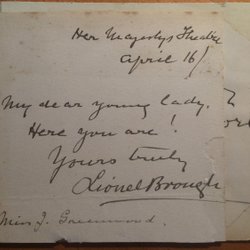 Her Majestys Theatre
April 16/
My dear young lady.
Here you are!
Yours truly
Lionel Brough
Miss J. Greenwood.